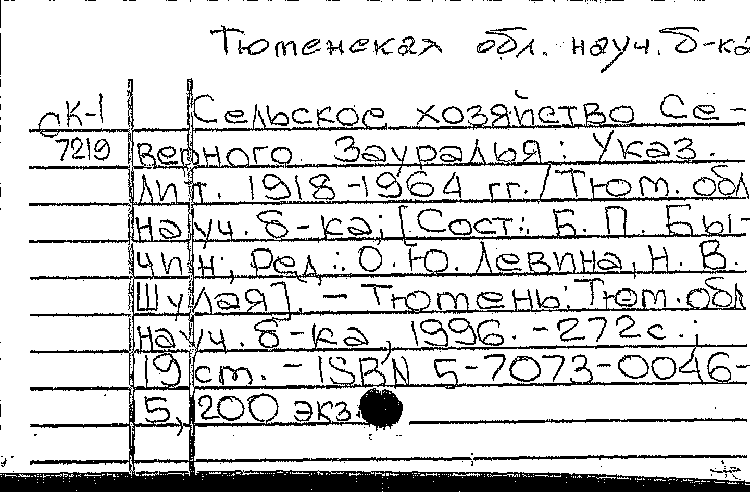 Тюменская обл. науч. б-ка
СК-1 Сельское хозяйство Се-
7219 верного Зауралья: Указ.
лит. 1918-1964 гг. / Тюм. обл
науч. б-ка; [Сост.: Б. П. Бы-
чин; Ред.: О. Ю. Левина, Н. В.
Шулая]. - Тюмень: Тюм. обл
науч. б-ка, 1996. - 272 с.;
19 см. - ISBN 5-7073-0046-
5, 200 экз.